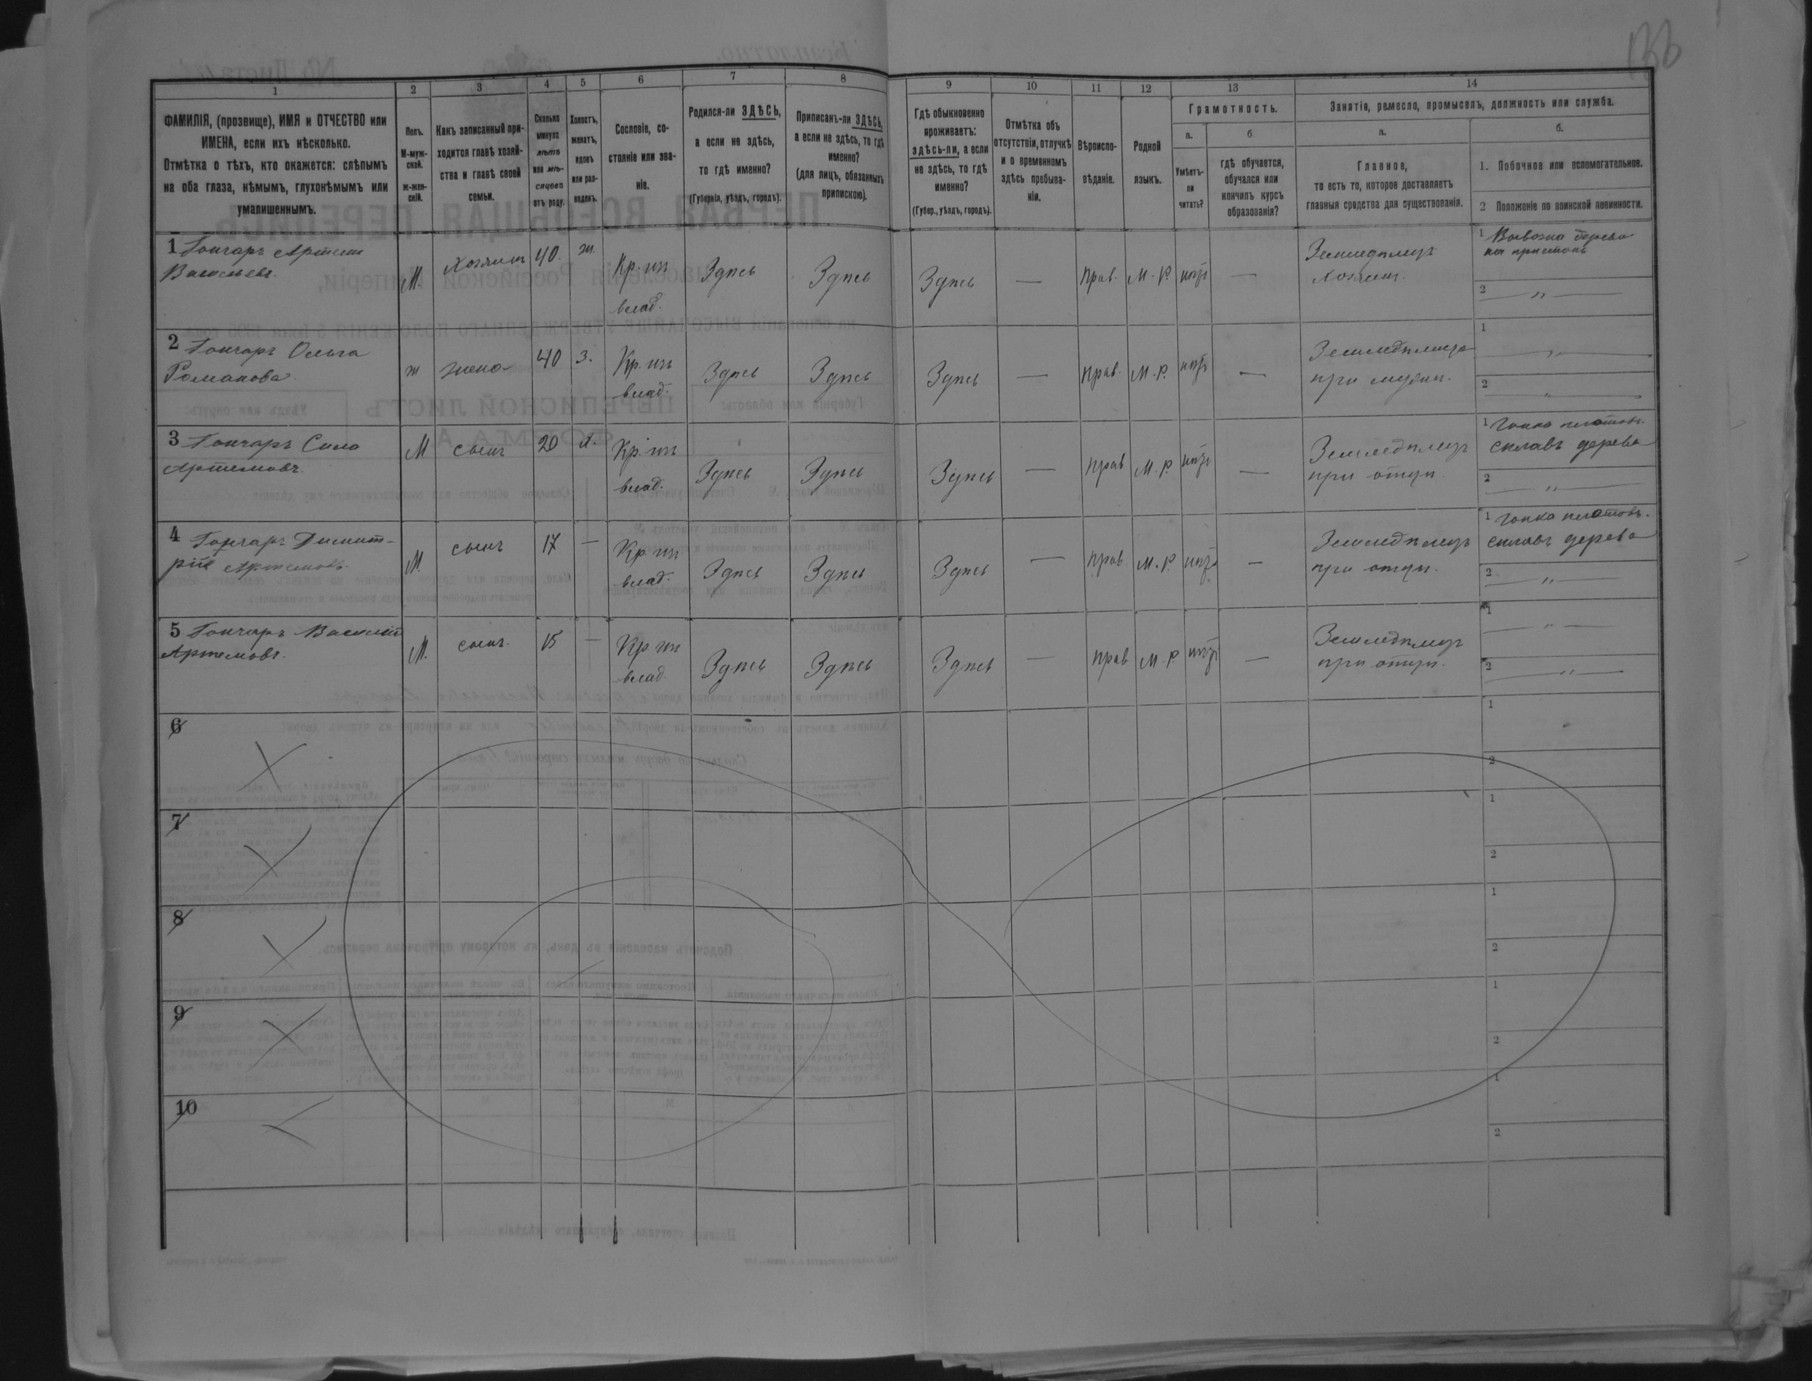 133
1 2 3 4 5 6 7 8 9 10 11 12 13 14
ФАМИЛІЯ, (прозвище), ИМЯ и ОТЧЕСТВО или
ИМЕНА, если ихъ нѣсколько.
Отмѣтка о тѣхъ, кто окажется: слѣпымъ
на оба глаза, нѣмымъ, глухонѣмымъ или
умалишеннымъ.
Полъ.
М-муж-
ской.
ж-жен-
скій.
Какъ записанный при-
ходится главѣ хозяй-
ства и главѣ своей
семьи.
Сколько
минуло
лѣтъ
или мѣ-
сяцевъ
отъ роду.
Холостъ,
женатъ,
вдовъ
или раз-
веденъ.
Сословіе, со-
стояніе или зва-
ніе.
Родился-ли ЗДѢСЬ,
а если не здѣсь,
то гдѣ именно?
(Губернія, уѣздъ, городъ).
Приписанъ-ли ЗДѢСЬ,
а если не здѣсь, то гдѣ
именно?
(для лицъ, обязанныхъ
припискою).
Гдѣ обыкновенно
проживаетъ:
здѣсь-ли, а если
не здѣсь, то гдѣ
именно?
(Губер., уѣздъ, городъ).
Отмѣтка объ
отсутствіи, отлучкѣ
и о временномъ
здѣсь пребыва-
ніи.
Вѣроиспо-
вѣданіе.
Родной
языкъ.
Грамотность.
а.
Умѣетъ-
ли
читать?
б.
гдѣ обучается,
обучался или
кончилъ курсъ
образованія?
Занятія, ремесло, промыселъ, должность или служба.
а.
Главное,
то есть то, которое доставляетъ
главныя средства для существованія.
б.
1. Побочное или вспомогательное.
2 Положеніе по воинской повинности.
1 Гончаръ Артемъ
Васильевъ
М. хозяинъ 40 ж. Кр. изъ
влад. Здѣсь Здѣсь Здѣсь — Прав. М.-Р. нѣтъ — Земледѣлецъ
хозяинъ.
1 Вывозка дерева
на пристань
2 — „ —
2 Гончаръ Ольга
Романова
ж жена 40 з. Кр. изъ
влад. Здѣсь Здѣсь Здѣсь — Прав. М.-Р. нѣтъ — Земледѣлица
при мужѣ.
1 — „ —
2 — „ —
3 Гончаръ
Артемовъ.
М сынъ 20 х. Кр. изъ
влад. Здѣсь Здѣсь Здѣсь — Прав М.-Р. нѣтъ — Земледѣлецъ
при отцѣ.
1 Гонка плотовъ
сплавъ дерева
2 — „ —
4 Гончаръ Димит-
рій Артемовъ.
М. сынъ 17 — Кр. изъ
влад. Здѣсь Здѣсь Здѣсь — Прав М.-Р. нѣтъ — Земледѣлецъ
при отцѣ.
1 Гонка плотовъ.
сплавъ дерева
2 — „ —
5 Гончаръ Василій
Артемовъ.
М. сынъ. 15 — Кр. изъ
влад. Здѣсь Здѣсь Здѣсь — Прав М.-Р. нѣтъ — Земледѣлецъ
при отцѣ.
1 — „ —
2 — „ —
6
1
2
7
1
2
8
1
2
9
1
2
10
1
2